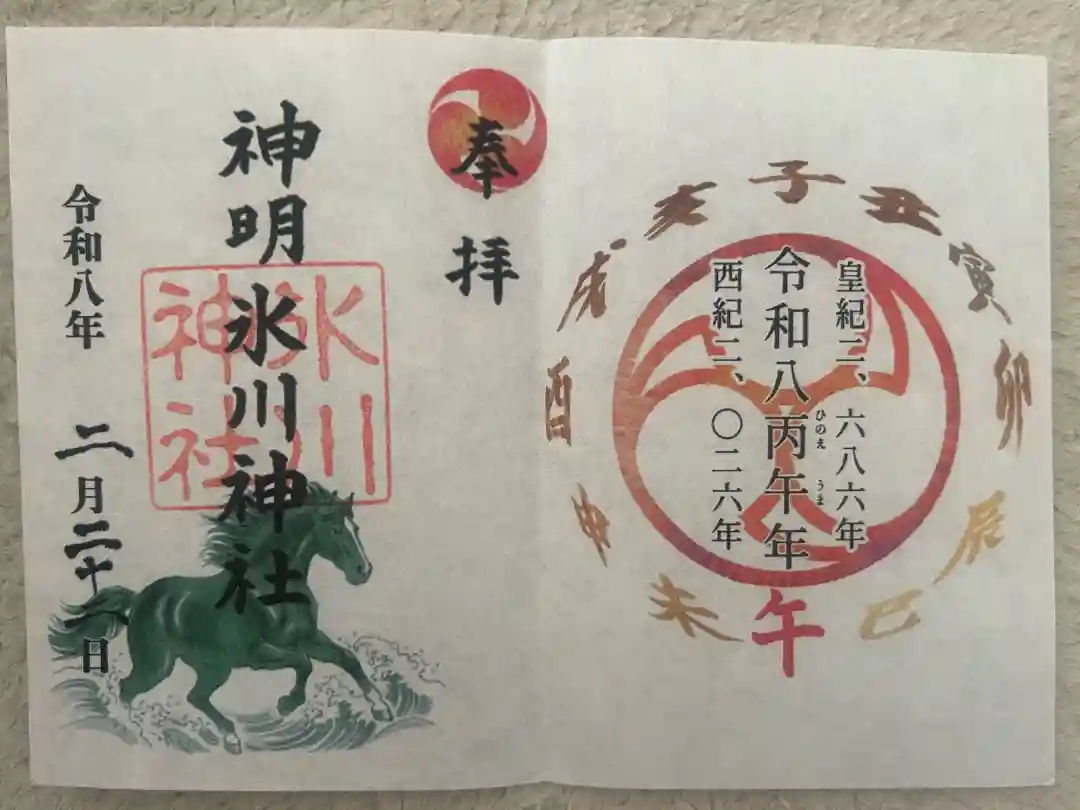 皇紀二、六八六年
令和八丙午年
ひのえ うま
西紀二、〇二六年
子
丑
寅
卯
辰
巳
午
未
申
酉
戌
亥
奉拝
神明氷川神社
氷川
神社
令和八年 二月二十一日